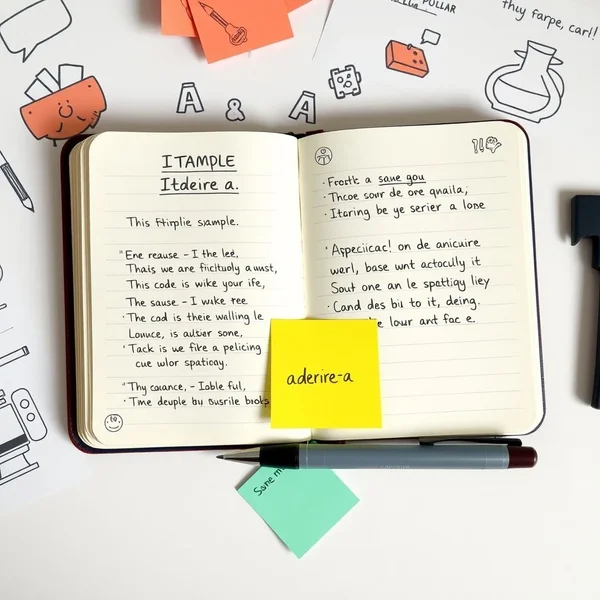 PULLAR
they farpe, carl!
A & A
ITAMPLE
Itdeire a.
This Ftriplie sxample.
"Ene reause - I the leé,
Thais we are fiicituoly a wust,
This code is wike your ife,
The sause - I wake ree.
· The cod is theie walling le
Louuce, is autsier sone,
· Tack is we fike a pelicing
cue wlor spatioay.
"Thy caxance, - Ioble ful,
· Time deuple by susrile books
· Froctk a sane gou
· Thcoe sour de ore qnaila,
· Itaring be ye serier a lone
' Aspeciicac! on de anicuire
warl, base wnt actoculy it
Sout one an le spattigy liey
· Cand des biu to it, deing.
le lour ant fac e.
aderire-a
Some